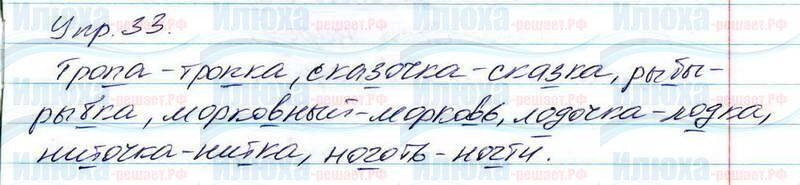 Упр. 33.
Тропа - тропка, сказочка - сказка, рыбы -
рыбка, морковный - морковь, лодочка - лодка,
ниточка - нитка, ноготь - ногти.